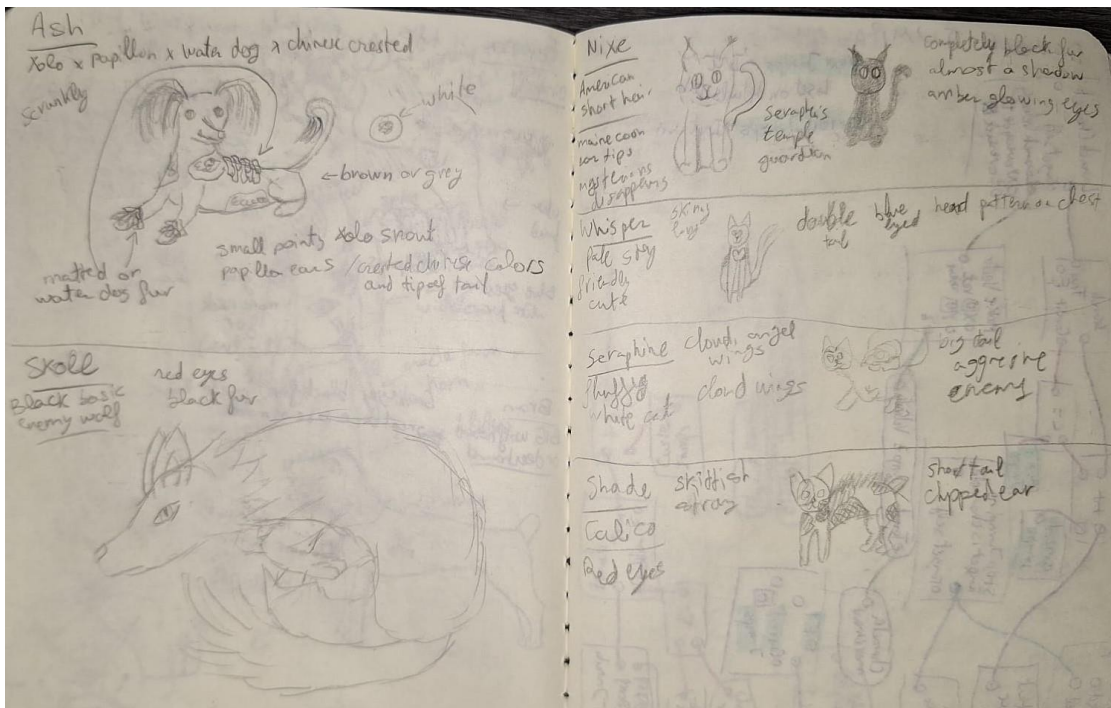 Ash
Xolo x papillon x water dog x chinese crested
scrunkly
white
←brown or grey
small points xolo snout
papillon ears / crested chinese colors
and tip of tail
matted or
water dog fur
Skoll
Black basic
enemy wolf
red eyes
black fur
Nixe
American
short hair
maine coon
ear tips
disappears
seraphis
temple
guardian
completely black fur
almost a shadow
amber glowing eyes
Whisper
pale grey
friendly
cute
skinny
long
double
tail
blue
eyed
heart pattern on chest
Seraphine
fluffy
white cat
cloud, angel
wings
cloud wings
big tail
aggresive
enemy
Shade
Calico
Red eyes
skittish
stray
short tail
clipped ear